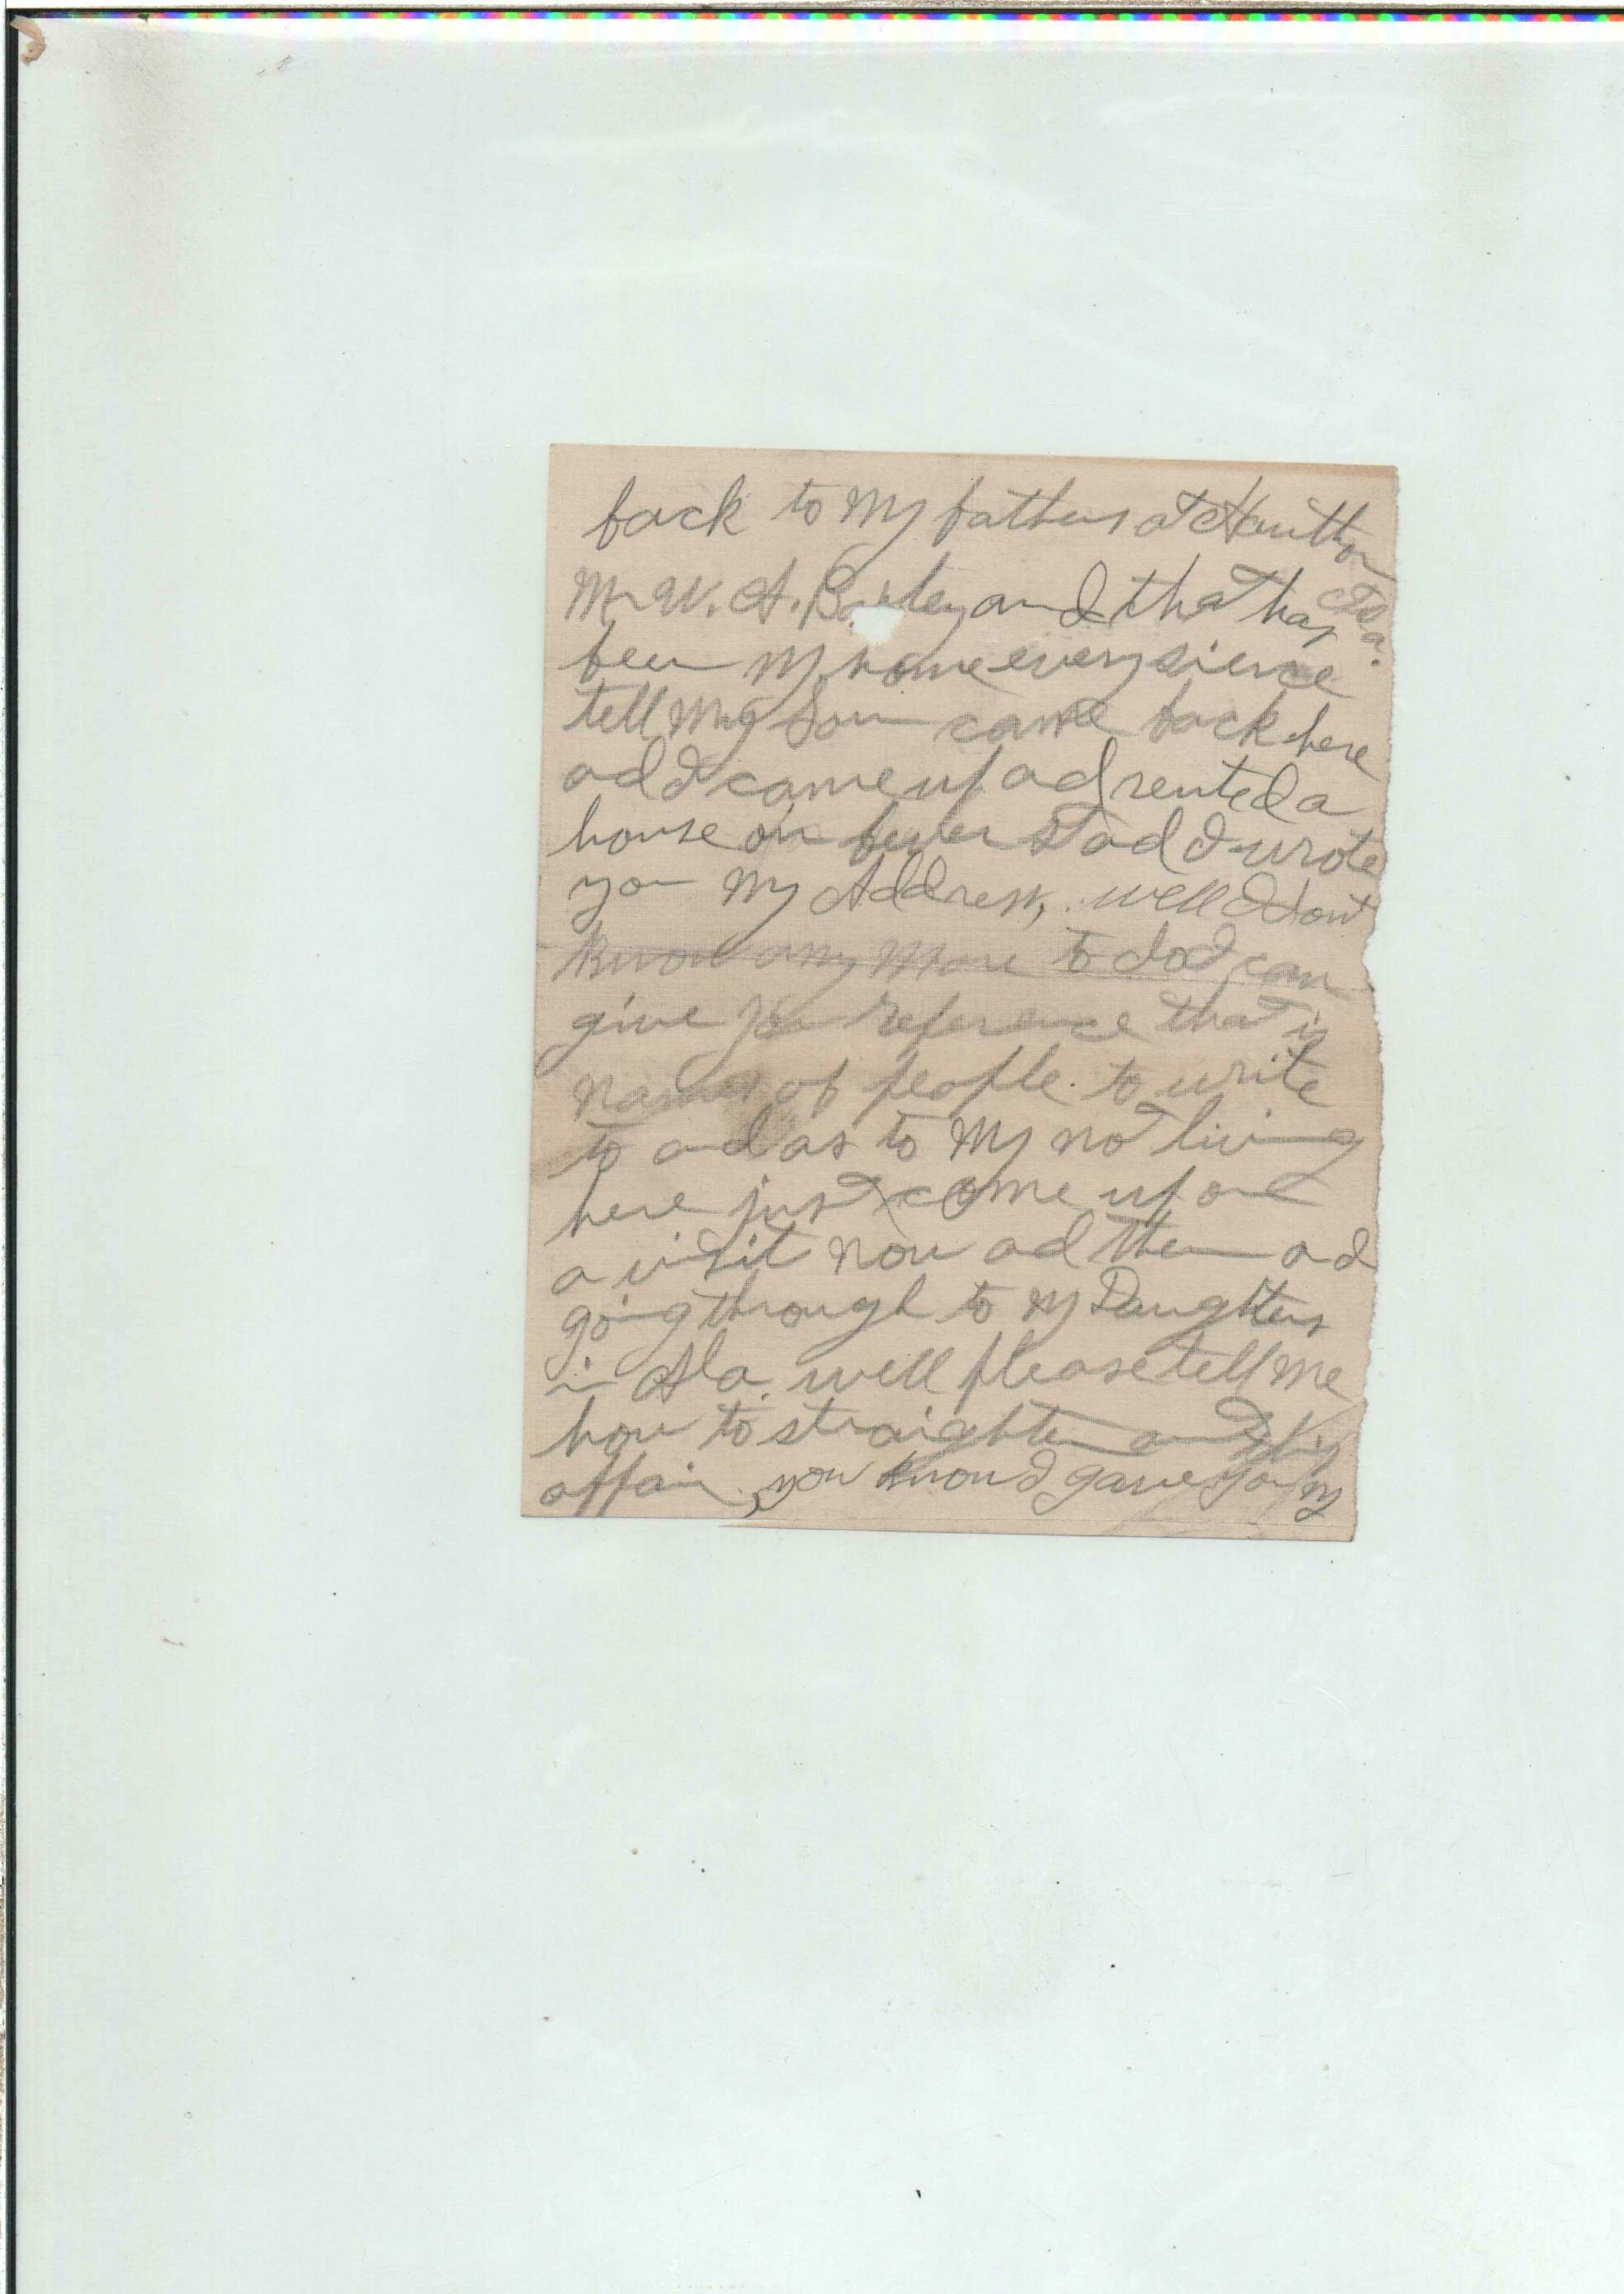 back to My fathers at
Mr W. A. and that has
been My home every sience
tell My Son came back here
ad I came up ad rented a
house on St ad I wrote
you My Address, well I dont
Know any More to do I can
give you reference that is
names of people to write
to and as to My not living
here just come up on
a visit now ad then ad
going through to My Daughters
in Ala. well please tell Me
how to straighten this
affair, you know I gave you My